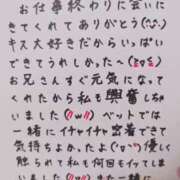 お仕事終わりに会いに
きてくれてありがとう(˙˘˙)
キス大好きだからいっぱい
できてうれしかった〜(ˊᵕˋ)
お兄さんすぐ元気になって
くれたから私も興奮しちゃい
ました(//ω//)ベットでは
一緒にイチャイチャ密着できて
気持ちよかったよ(ˊoˋ♡)優しく
触られて私も何回もイッてしま
いました(//ω//)また一緒に